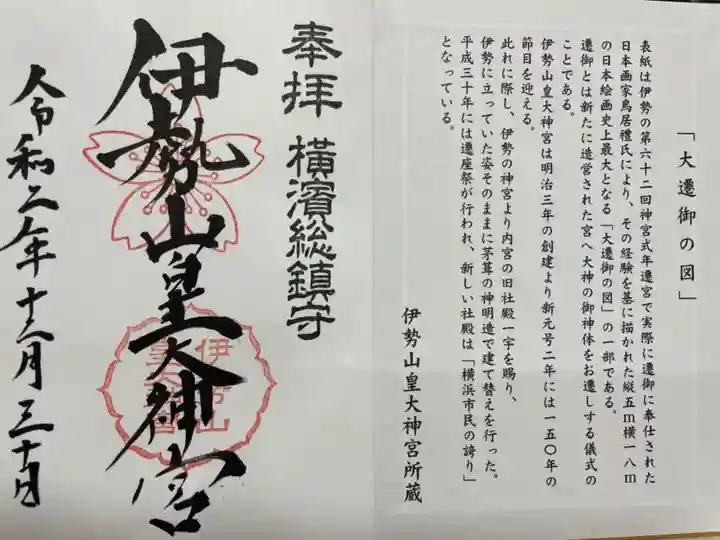 「大遷御の図」
表紙は伊勢の第六十二回神宮式年遷宮で実際に遷御に奉仕された
日本画家鳥居禮氏により、その経験を基に描かれた縦五m横一八m
の日本絵画史上最大となる「大遷御の図」の一部である。
遷御とは新たに造営された宮へ大神の御神体をお遷しする儀式の
ことである。
伊勢山皇大神宮は明治三年の創建より新元号二年には一五〇年の
節目を迎える。
此れに際し、伊勢の神宮より内宮の旧社殿一宇を賜り、
伊勢に立っていた姿そのままに茅葺の神明造で建て替えを行った。
平成三十年には遷座祭が行われ、新しい社殿は「横浜市民の誇り」
となっている。
伊勢山皇大神宮所蔵
奉拝 横濱総鎮守
伊勢山皇大神宮
令和二年十二月三十日